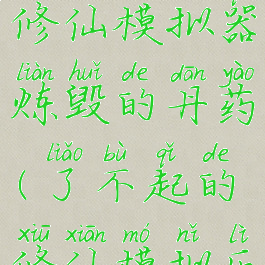 修仙模拟器
liàn huǐ de dān yào
炼毁的丹药
liǎo bù qǐ de
(了不起的
xiū xiān mó nǐ
修仙模拟